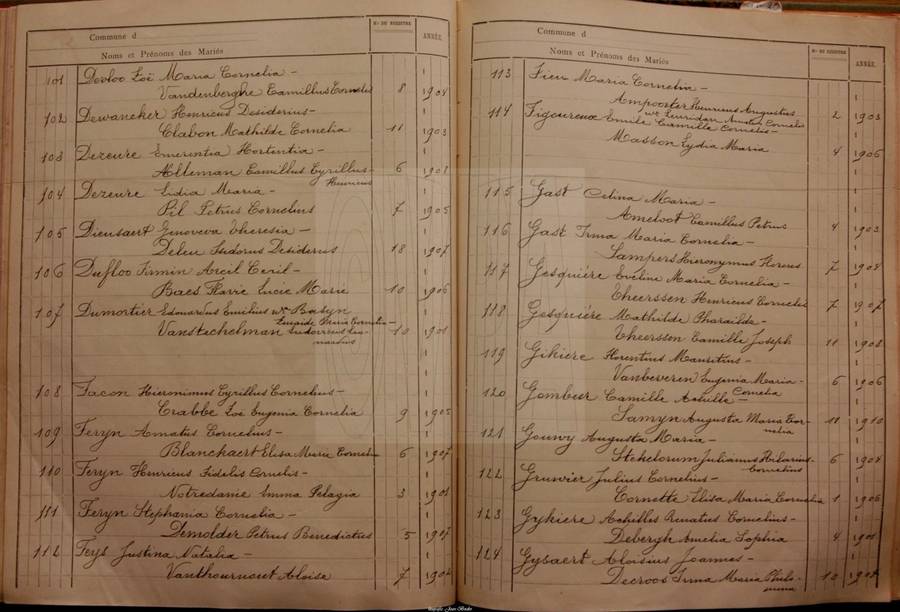 Commune d
Nos DU REGISTRE
ANNÉE.
Noms et Prénoms des Mariés
101 Devloo Zoë Maria Cornelia –
Vandenberghe Camillus Cornelis 8 1904
102 Dewaneker Henricus Desiderius –
Clabon Mathilde Cornelia 11 1903
103 Dezeure Emerentia Hortentia –
Alleman Camillus Cyrillus – 6 1908
Henricus
104 Dezeure Lidia Maria –
Pil Petrus Cornelius 7 1905
105 Dieusaert Genoveva Theresia –
Deleu Isidorus Desiderus 18 1907
106 Dufloo Firmin Cyril –
Baes Marie Lucie Marie 10 1906
107 Dumortier Edouardus Emelius wr Bailyn
Zenaïde Maria Cornelia –
Vansteehelman Ludovicus 10 1901
108 Facon Hieronimus Cyrillus Cornelius –
Crabbe Zoë Eugenia Cornelia 9 1905
109 Feryn Amatus Cornelius –
Blanckaert Elisa Marie Cornelia 6 1907
110 Feryn Henricus Fidelis Cornelis –
Notredame Emma Pelagia 3 1901
111 Feryn Stephania Cornelia –
Demolder Petrus Benedictus 5 1907
112 Feys Justina Natalia –
Vanthournout Aloise 7 1902
Commune d
Nos DU REGISTRE
ANNÉE.
Noms et Prénoms des Mariés
113 Fieu Maria Cornelia –
Ampoorter Henricus Augustus 2 1903
114 Figoureux Emile Camille Cornelis –
Masson Lydia Maria 4 1906
115 Gast Celina Maria –
Ameloot Camillus Petrus 4 1903
116 Gast Irma Maria Cornelia –
Sampers Hieronymus Florens 7 1904
117 Gesquière Eveline Maria Cornelia –
Theerssen Henricus Cornelis 7 1907
118 Gesquière Mathilde Pharaïlde –
Theerssen Camille Joseph 11 1908
119 Gikiere Florentius Mauritius –
Vanbeveren Eugenia Maria – 6 1906
Cornelia
120 Gombeir Camille Achille –
Samyn Augusta Maria Cor- 11 1910
nelia
121 Gouwy Augusta Maria –
Stekelorum Julianus Hilarius 6 1904
Cornelius
122 Gruwier Julius Cornelius –
Cornette Elisa Maria Cornelia 1 1906
123 Gykiere Achilles Renatus Cornelius –
Debergh Amelia Sophia 4 1901
124 Gysaert Aloisius Joannes –
Decroos Irma Maria Philo- 12 1907
mena